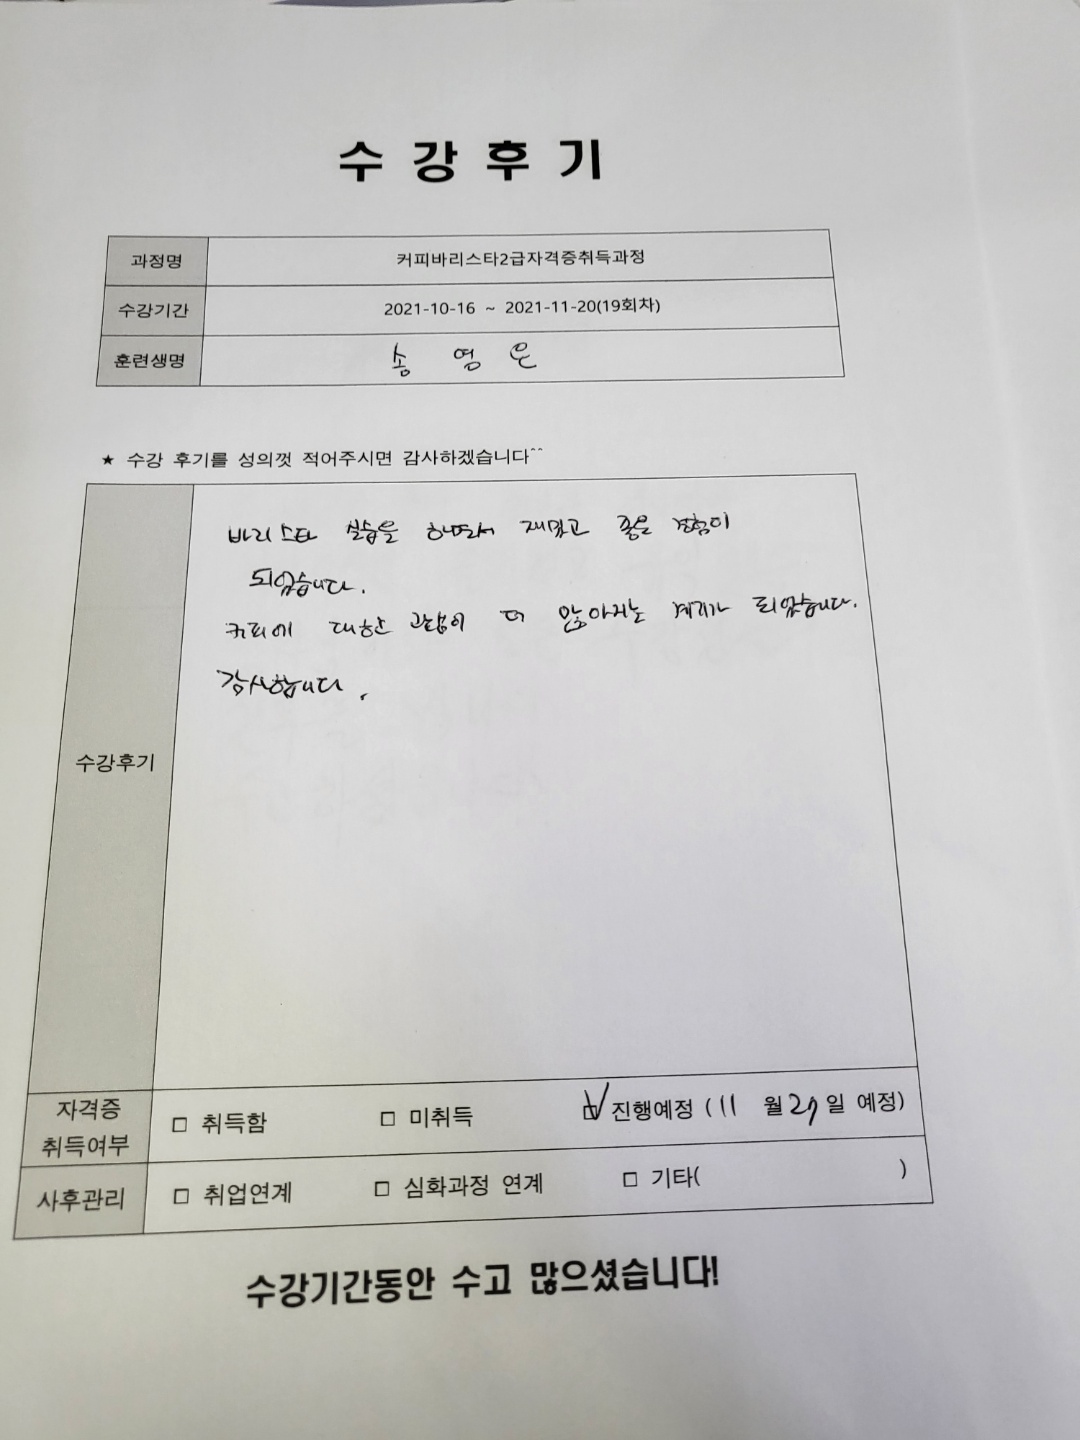 수 강 후 기
과정명 커피바리스타2급자격증취득과정
수강기간 2021-10-16 ~ 2021-11-20(19회차)
훈련생명 송 영 은
★ 수강 후기를 성의껏 적어주시면 감사하겠습니다^^
수강후기
바리스타 실습을 하면서 재밌고 좋은 경험이
되었습니다.
커피에 대한 관심이 더 많아지는 계기가 되었습니다.
감사합니다.
자격증 취득여부
□ 취득함 □ 미취득 ☑ 진행예정 (11 월 27일 예정)
사후관리 □ 취업연계 □ 심화과정 연계 □ 기타( )
수강기간동안 수고 많으셨습니다!